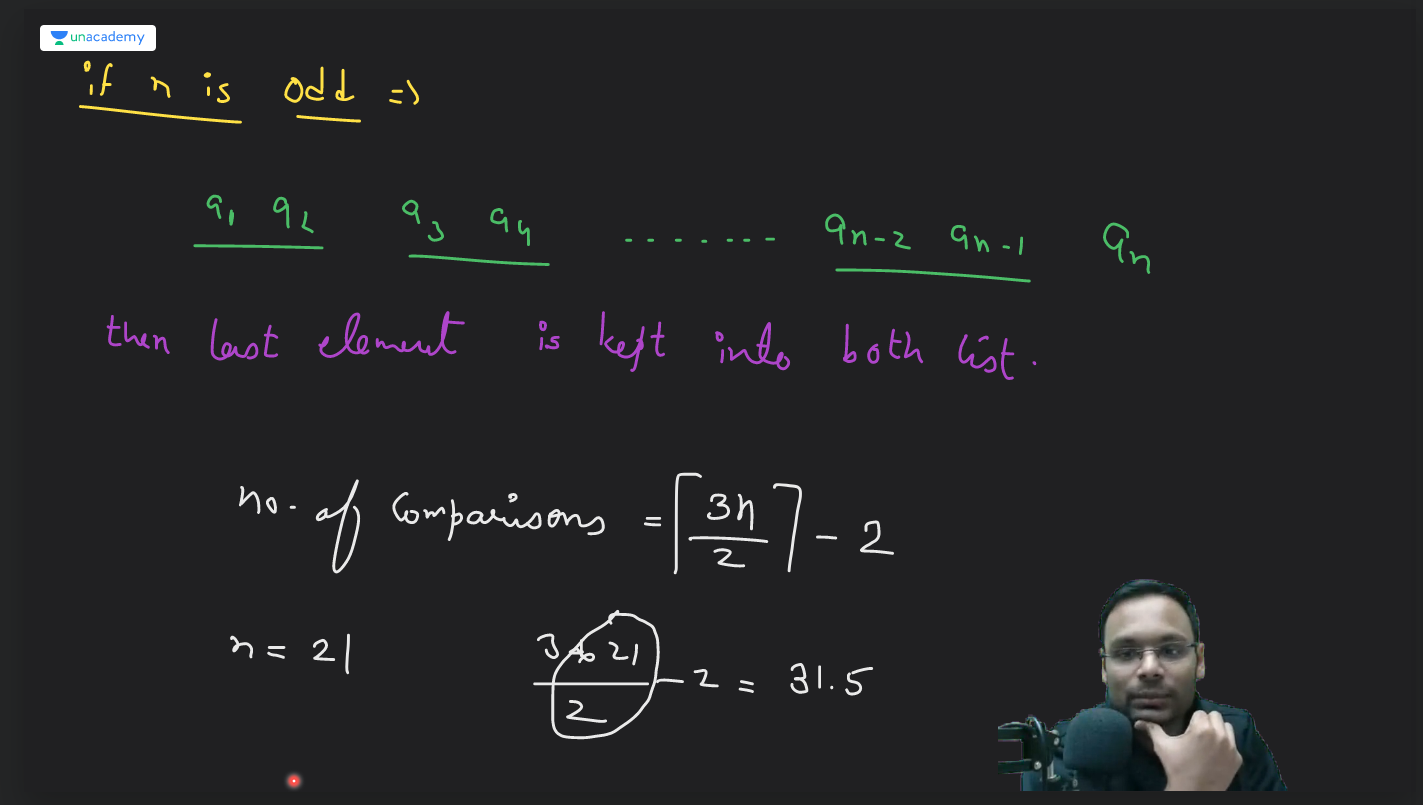 unacademy
if n is odd =>
a1 a2 a3 a4 ....... an-2 an-1 an
then last element is kept into both list.
no. of comparisons = ⌈3n/2⌉ - 2
n = 21 3*21/2 - 2 = 31.5